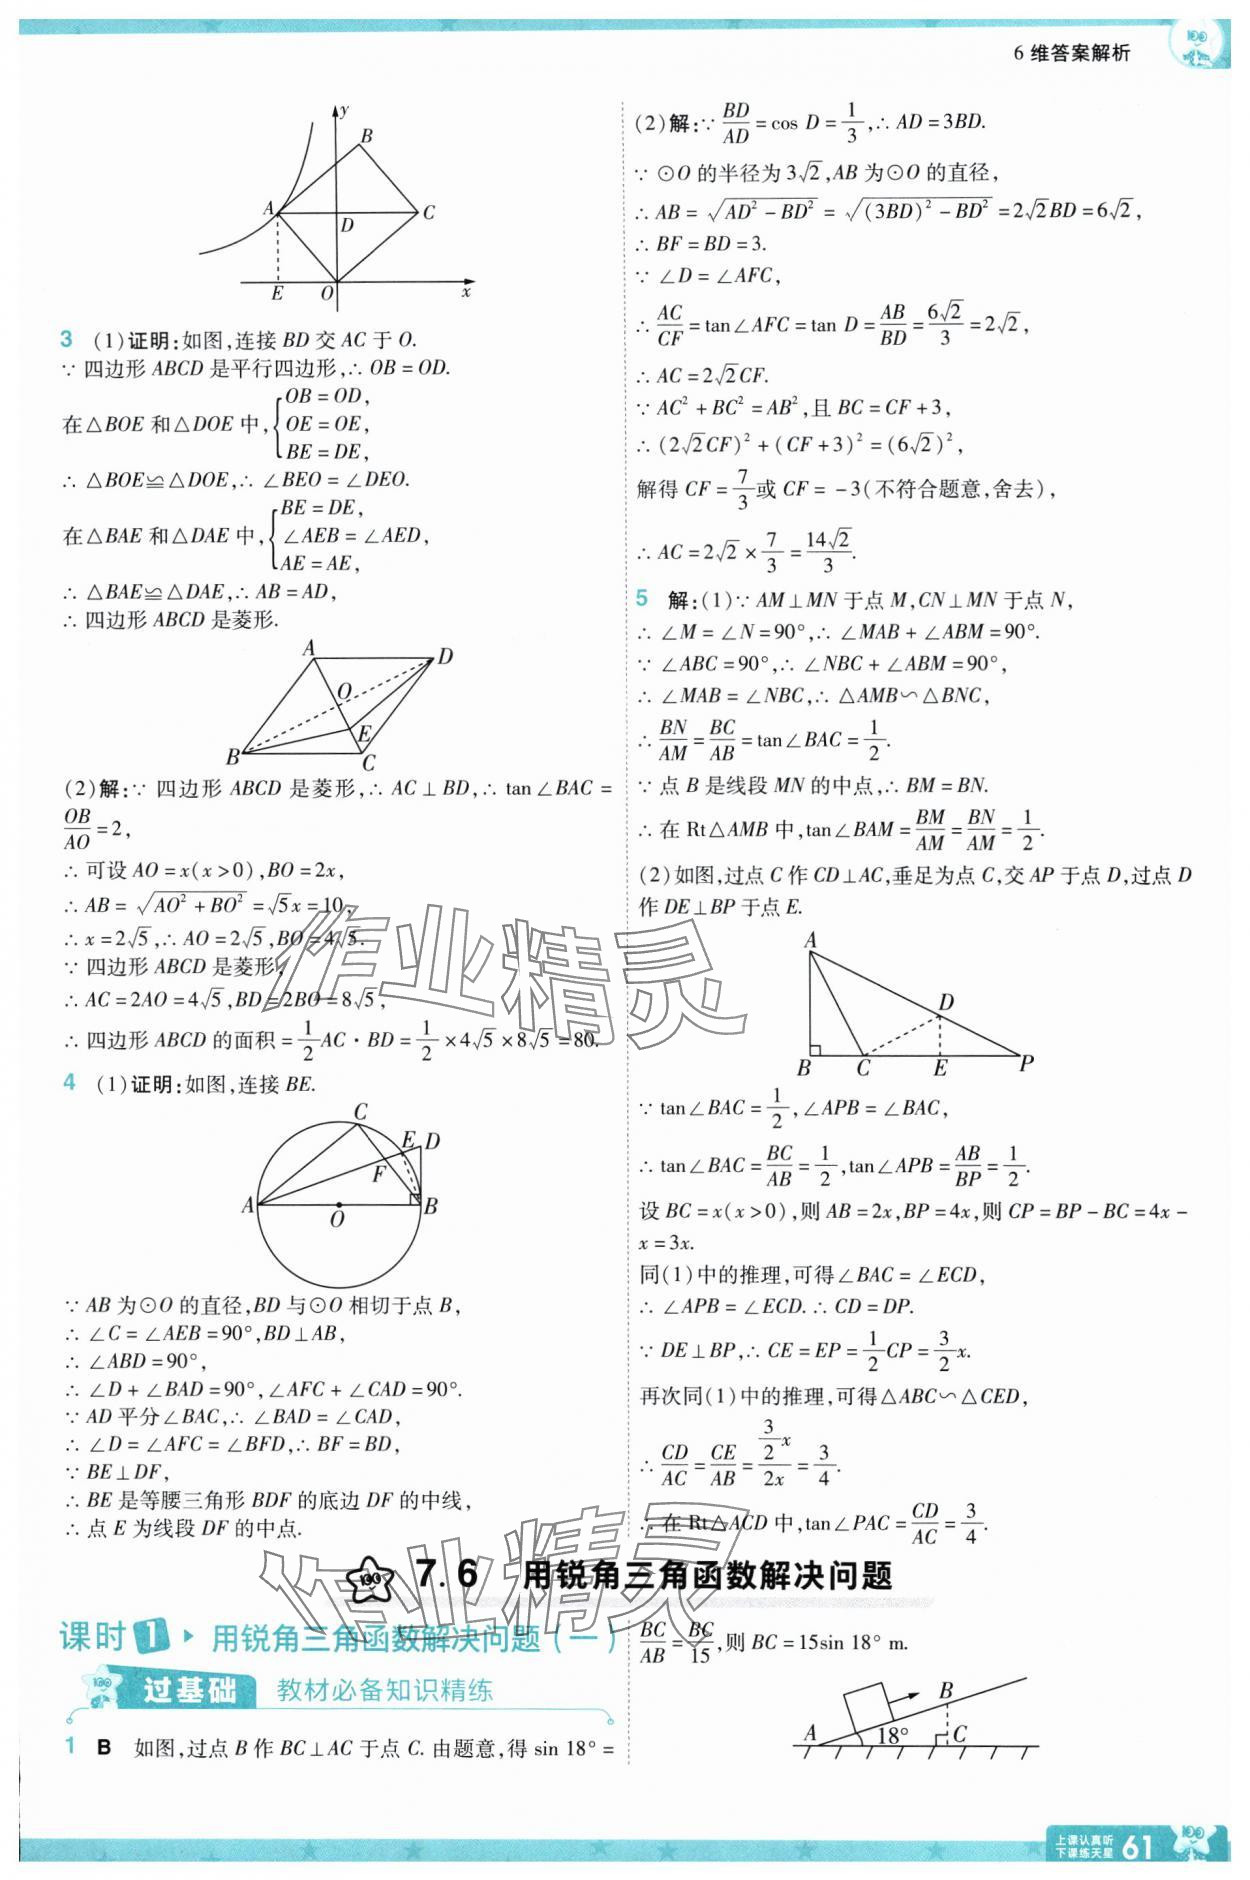 6 维答案解析
y
B
A
D
C
E
O
x
3 (1)证明:如图,连接 BD 交 AC 于 O.
∵ 四边形 ABCD 是平行四边形,∴ OB = OD.
在△BOE 和△DOE 中,{OB = OD, OE = OE, BE = DE,
∴ △BOE≌△DOE,∴ ∠BEO = ∠DEO.
在△BAE 和△DAE 中,{BE = DE, ∠AEB = ∠AED, AE = AE,
∴ △BAE≌△DAE,∴ AB = AD,
∴ 四边形 ABCD 是菱形.
A
D
O
E
B
C
(2)解:∵ 四边形 ABCD 是菱形,∴ AC ⊥ BD,∴ tan∠BAC =
OB/AO = 2,
∴ 可设 AO = x(x>0),BO = 2x,
∴ AB = √(AO²+BO²) = √5x = 10,
∴ x = 2√5,∴ AO = 2√5,BO = 4√5.
∵ 四边形 ABCD 是菱形,
∴ AC = 2AO = 4√5,BD = 2BO = 8√5,
∴ 四边形 ABCD 的面积 = 1/2 AC · BD = 1/2 ×4√5 ×8√5 = 80.
4 (1)证明:如图,连接 BE.
C
E
D
F
A
O
B
∵ AB 为⊙O 的直径,BD 与⊙O 相切于点 B,
∴ ∠C = ∠AEB = 90°,BD⊥AB,
∴ ∠ABD = 90°,
∴ ∠D + ∠BAD = 90°,∠AFC + ∠CAD = 90°.
∵ AD 平分∠BAC,∴ ∠BAD = ∠CAD,
∴ ∠D = ∠AFC = ∠BFD,∴ BF = BD,
∵ BE⊥DF,
∴ BE 是等腰三角形 BDF 的底边 DF 的中线,
∴ 点 E 为线段 DF 的中点.
(2)解:∵ BD/AD = cos D = 1/3,∴ AD = 3BD.
∵ ⊙O 的半径为 3√2,AB 为⊙O 的直径,
∴ AB = √(AD² − BD²) = √((3BD)² − BD²) = 2√2BD = 6√2,
∴ BF = BD = 3.
∵ ∠D = ∠AFC,
∴ AC/CF = tan∠AFC = tan D = AB/BD = 6√2/3 = 2√2,
∴ AC = 2√2CF.
∵ AC² + BC² = AB²,且 BC = CF + 3,
∴ (2√2CF)² + (CF + 3)² = (6√2)²,
解得 CF = 7/3 或 CF = −3(不符合题意,舍去),
∴ AC = 2√2 × 7/3 = 14√2/3.
5 解:(1)∵ AM⊥MN 于点 M,CN⊥MN 于点 N,
∴ ∠M = ∠N = 90°,∴ ∠MAB + ∠ABM = 90°.
∵ ∠ABC = 90°,∴ ∠NBC + ∠ABM = 90°,
∴ ∠MAB = ∠NBC,∴ △AMB∽△BNC,
∴ BN/AM = BC/AB = tan∠BAC = 1/2.
∵ 点 B 是线段 MN 的中点,∴ BM = BN.
∴ 在 Rt△AMB 中,tan∠BAM = BM/AM = BN/AM = 1/2.
(2)如图,过点 C 作 CD⊥AC,垂足为点 C,交 AP 于点 D,过点 D
作 DE⊥BP 于点 E.
A
D
B
C
E
P
∵ tan∠BAC = 1/2,∠APB = ∠BAC,
∴ tan∠BAC = BC/AB = 1/2,tan∠APB = AB/BP = 1/2.
设 BC = x(x>0),则 AB = 2x,BP = 4x,则 CP = BP − BC = 4x −
x = 3x.
同(1)中的推理,可得∠BAC = ∠ECD,
∴ ∠APB = ∠ECD.∴ CD = DP.
∵ DE⊥BP,∴ CE = EP = 1/2 CP = 3/2 x.
再次同(1)中的推理,可得△ABC∽△CED,
∴ CD/AC = CE/AB = (3/2 x)/2x = 3/4.
∴ 在 Rt△ACD 中,tan∠PAC = CD/AC = 3/4.
作业精灵
作业精灵
7.6 用锐角三角函数解决问题
课时 1 用锐角三角函数解决问题(一)
过基础 教材必备知识精练
1 B 如图,过点 B 作 BC⊥AC 于点 C. 由题意,得 sin 18° =
BC/AB = BC/15,则 BC = 15sin 18° m.
B
A
18°
C
上课认真听
下课练天星
61